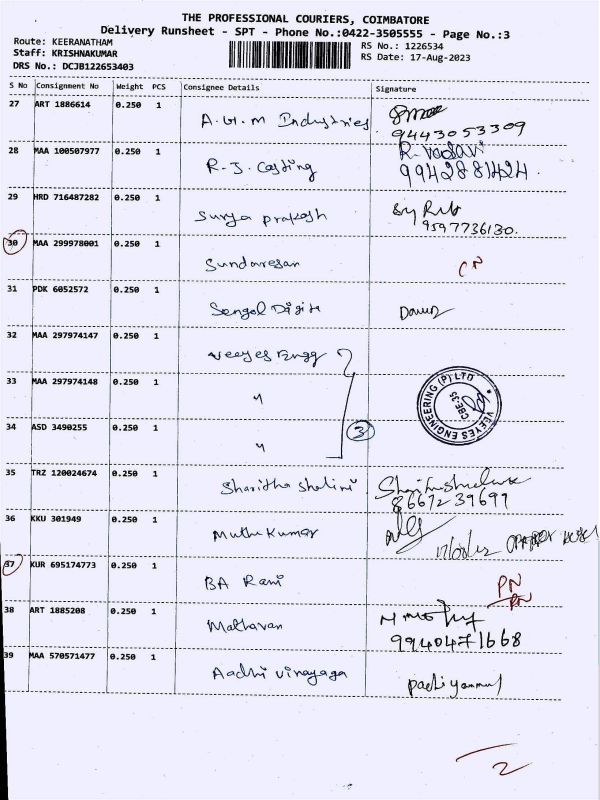 THE PROFESSIONAL COURIERS, COIMBATORE
Delivery Runsheet - SPT - Phone No.:0422-3505555 - Page No.:3
Route: KEERANATHAM
RS No.: 1226534
Staff: KRISHNAKUMAR
RS Date: 17-Aug-2023
DRS No.: DCJB122653403
S No Consignment No Weight PCS Consignee Details Signature
27 ART 1886614 0.250 1 A.G.M Industries
9443053309
28 MAA 100507977 0.250 1 R.J. Casting
9942881424.
29 HRD 716487282 0.250 1 Surya prakash
9597736130.
30 MAA 299978001 0.250 1 Sundaresan CN
31 PDK 6052572 0.250 1 Sengol Digits
32 MAA 297974147 0.250 1 Veeyes Engg
33 MAA 297974148 0.250 1 "
34 ASD 3490255 0.250 1 " 3
VEEYES ENGINEERING (P) LTD
CBE-35
35 TRZ 120024674 0.250 1 Sharitha Shalini
8667239699
36 KKU 301949 0.250 1 Muthu Kumar
37 KUR 695174773 0.250 1 BA Rani PN
PN
38 ART 1885208 0.250 1 Mathavan
9940471668
39 MAA 570571477 0.250 1 Aadhi vinayaga
2